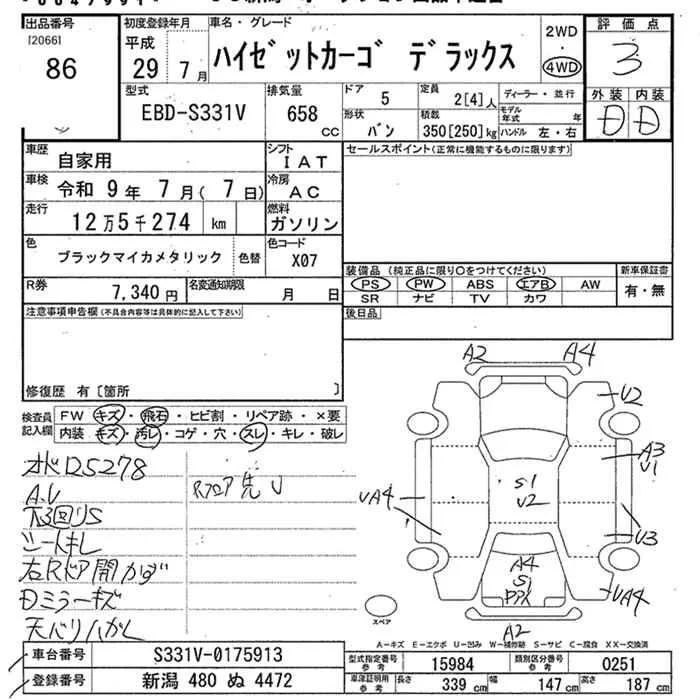 出品番号
[2066]
86
初度登録年月
平成
29 年 7 月
車名・グレード
ハイゼットカーゴ デラックス
2WD
・
4WD
評価点
3
外装 内装
D D
型式
EBD-S331V
排気量
658 CC
ドア 5
形状 バン
定員 2[4]人
積載 350[250]kg
ディーラー・並行
モデル年式 年
ハンドル 左・右
車歴 自家用
シフト IAT
セールスポイント(正常に機能するものに限ります)
車検 令和 9年 7月( 7日)
冷房 AC
走行 12万5千274 km
燃料 ガソリン
色 ブラックマイカメタリック 色替
色コード X07
R券 7,340 円
名変通知期限 月 日
装備品 (純正品に限り○をつけてください)
新車保証書
有・無
PS PW ABS エアB AW
SR ナビ TV カワ
後日品
注意事項申告欄(不具合内容等は具体的に記入して下さい)
修復歴 有[箇所 ]
検査員記入欄
FW キズ・飛石・ヒビ割・リペア跡・×要
内装 キズ・汚レ・コゲ・穴・スレ・キレ・破レ
A.V
シートキレ
右Rドア開かず
Dミラーキズ
天バリハガレ
RフロアE先U
A2 A4
U2
A3
U1
S1
U2
UA4
U3
A4
S1
UA4
A2
スペア
A-キズ E-エクボ U-凹み W-補修跡 S-サビ C-腐食 XX-交換済
車台番号 S331V-0175913
登録番号 新潟 480 ぬ 4472
型式指定番号 参考 15984
類別区分番号 参考 0251
車庫証明用 参考 長さ 339 cm 幅 147 cm 高さ 187 cm